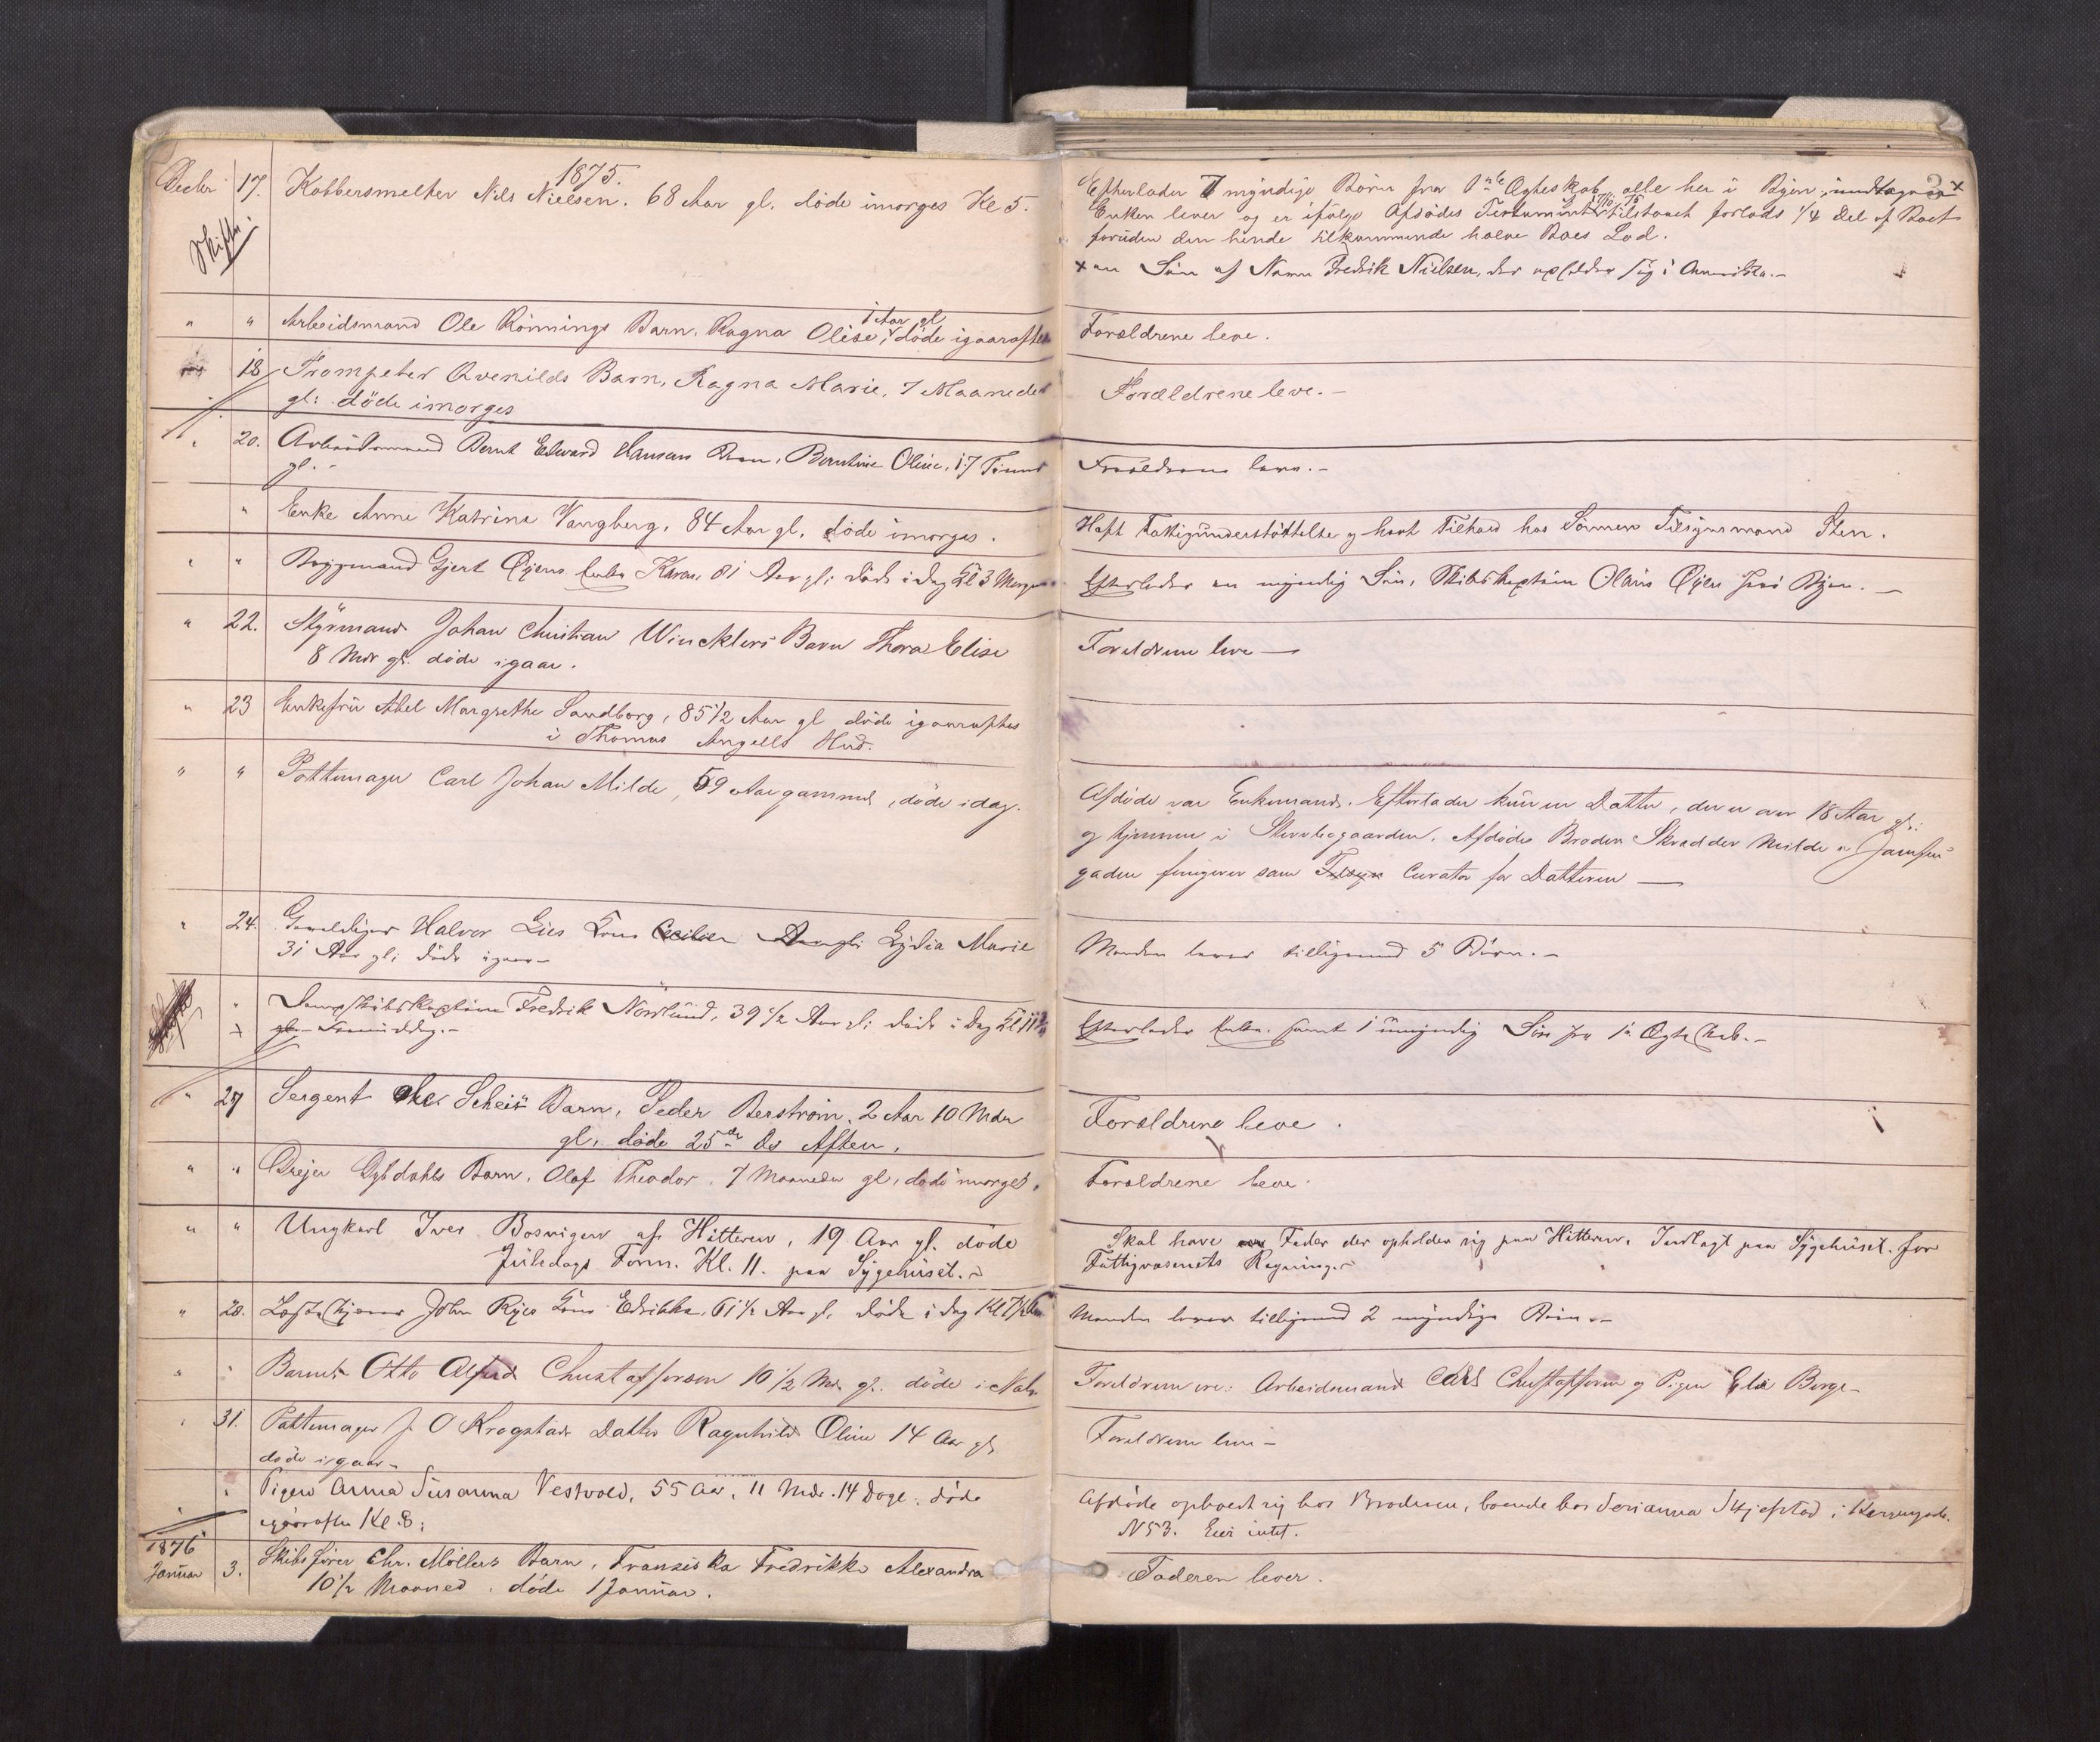 1875.
Decbr 17. Kobbersmelter Nils Nielsen. 68 Aar gl. döde imorges Kl 5.
Skifte
" " Arbeidsmand Ole Rönnings Barn, Ragna Olise, 1 Aar gl döde igaaraftes
18 Trompeter Qvenilds Barn, Ragna Marie, 7 Maaneder
gl: döde imorges
" 20. Arbeidsmand Bernt Edward Hansens Barn, Berntine Oline, 17 Timer
gl. -
" Enke Anne Katrine Vangberg, 84 Aar gl, döde imorges.
" " Byggmand Gjert Öyens Enke Karen, 81 Aar gl: döde i dag Kl 3 Morgen
" 22. Styrmand Johan Christian Wincklers Barn Thora Elise
8 Mdr gl. döde igaar.
" 23 Enkefru Abel Margrethe Sandborg, 85 1/2 Aar gl döde igaaraftes
i Thomas Angells Hus.
" " Pottemager Carl Johan Milde, 59 Aar gammel, döde idag.
" 24. Halvor Lies Kone Cecilie Lydia Marie
31 Aar gl; döde igaar -
" Dampskibskaptein Fredrik Nörlund, 39 1/2 Aar gl; döde i dag Kl 11
gl. Formiddag. -
" 27 Sergent Ole Scheis Barn, Peder Berström, 2 Aar 10 Mdr
gl, döde 25de ds Aften.
" " Dreier Dybdahls Barn, Olaf Theodor, 7 Maaneder gl, döde imorges.
" " Ungkarl Iver Bosvigen af Hitteren, 19 Aar gl. döde
Juledags Form. Kl. 11. paa Sygehuset. -
" 28. John Ryes Kone Edrikke, 61 1/2 Aar gl, döde i dag Kl 7 1/2
" " Barnet Otto Alfred Chustafferson 10 1/2 Mdr gl. döde i Nat
" 31. Pottemager J. O Krogstads Datter Ragnhild Oline 14 Aar gl
döde igaar -
" " Pigen Anna Susanna Vestvold, 55 Aar, 11 Mdr. 14 Dage, döde
igaaraftes Kl 8;
1876
Januar 3. Skibsförer Chr. Möllers Barn, Franziska Fredrikke Alexandra
10 1/2 Maaned, döde 1 Januar.
3
Efterlader 7 myndige Börn fra 1ste Ægteskab, alle her i Byen, undtagen x
Enken lever og er ifölge Afdödes Testament tilstaaet forlods 1/4 Del af Boet
foruden den hende tilkommende halve Boes Lod.
x en Sön af Navn Fredrik Nielsen, der opholder sig i Amerika. -
Forældrene leve.
Forældrene leve. -
Forældrene leve. -
Haft Fattigunderstöttelse og havt Tilhold hos Sönnen Tilsynsmand Sten.
Efterlader en myndig Sön, Skibskaptein Olaus Öyen her i Byen. -
Forældrene leve -
Afdöde var Enkemand. Efterlader kun en Datter, der er over 18 Aar gl:
og hjemme i Afdödes Broder Skrædder Milde
gaden fungerer som Tilsyn Curator for Datteren -
Manden lever tilligemed 5 Börn. -
Efterlader Enke samt 1 umyndig Sön fra 1ste Ægteskab. -
Forældrene leve.
Forældrene leve.
Skal have en Fader der opholder sig paa Hitteren. Indlagt paa Sygehuset for
Fattigvæsenets Regning. -
Manden lever tilligemed 2 myndige Börn. -
Forældrene ere: Arbeidsmand Carl Chustafferson og Pigen Berge -
Forældrene leve -
Afdöde opholdt sig hos Broderen, boende hos Serianna Skjefstad i
N 53. Eier intet.
Faderen lever.